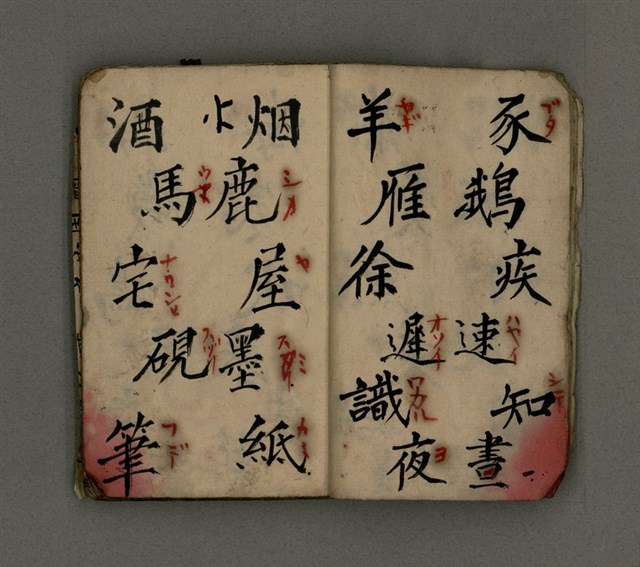 豕 ブタ
鵝
疾
速 ハヤイ
知
晝
羊 ヤギ
雁
徐
遲 オソイ
識 ワカル
夜 ヨ
烟
鹿 シカ
屋 ヤ
墨 スミ
紙 カミ
酒
馬 ウマ
宅
硯 スヅリ
筆 フデ